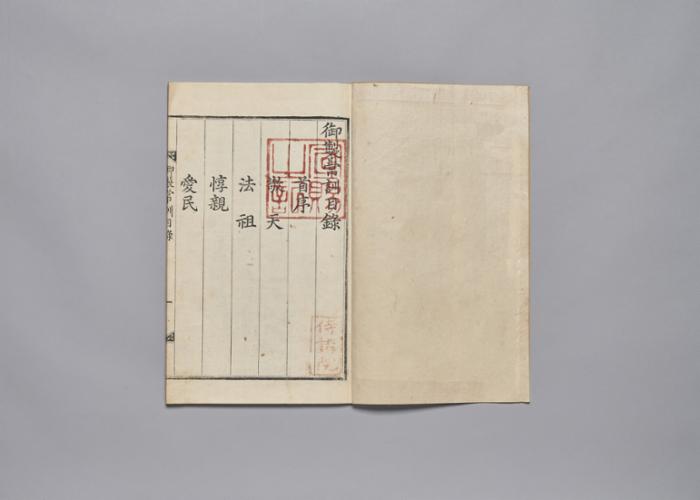 御製常訓目錄
首序
敬天
法祖
惇親
愛民
御製常訓目錄
一
侍講院